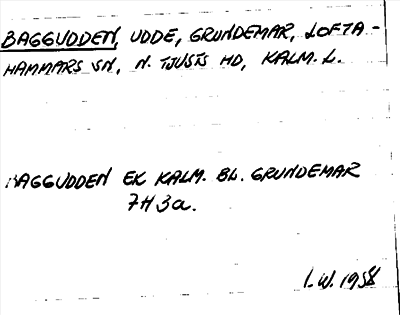 BAGGUDDEN, UDDE, GRUNDEMAR, LOFTA-
HAMMARS SN, N. TJUSTS HD, KALM. L.
BAGGUDDEN EK KALM. BL. GRUNDEMAR
7H3a.
I.W. 1958